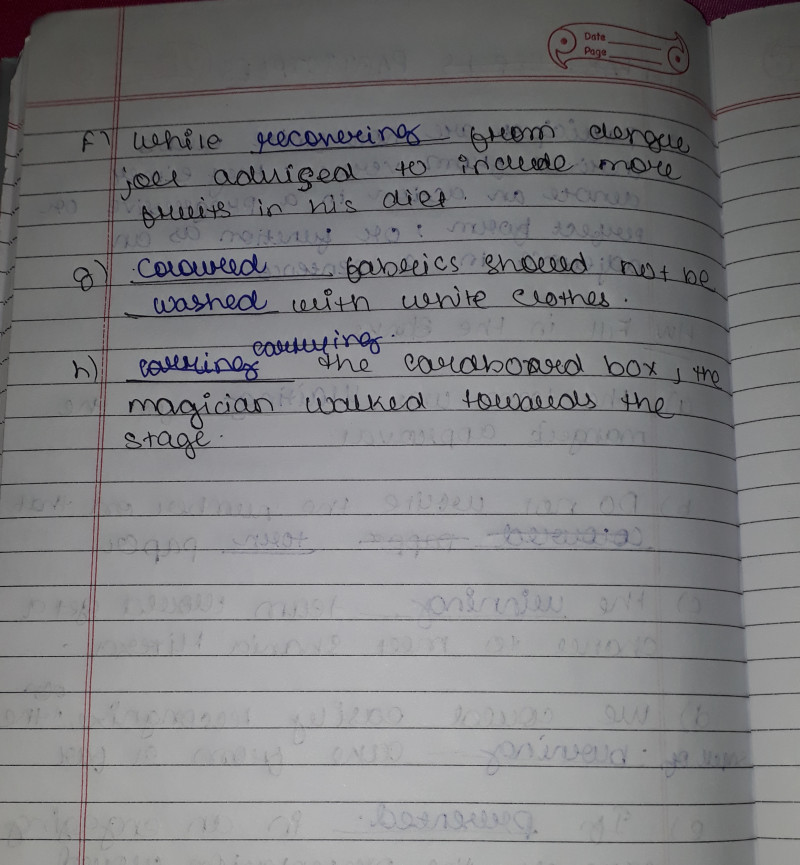 Date
Page
f) While recovering from dengue
joe advised to include more
fruits in his diet.
g) Coloured fabrics should not be
washed with white clothes.
carrying
h) carring the cardboard box, the
magician walked towards the
stage.